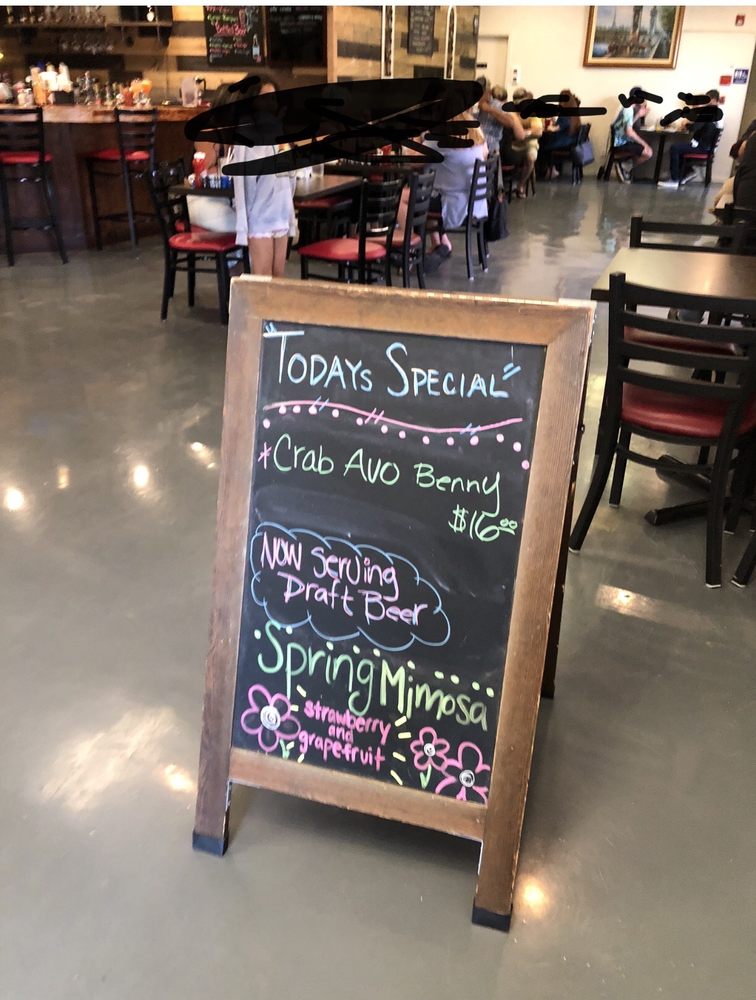 "TODAYs SPECIAL"
*Crab Avo Benny
$16.00
NOW serving
Draft Beer
Spring Mimosa
strawberry
and
grapefruit
Bottled Beer